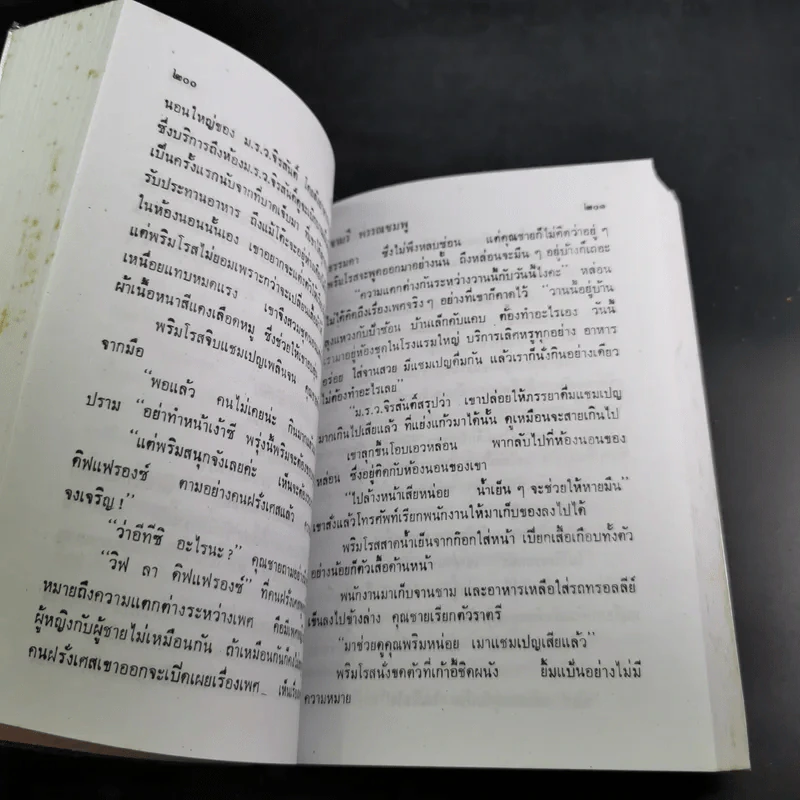 ๒๐๐
นอนใหญ่ของ ม.ร.ว.จิรสันต์
ซึ่งบริการถึงห้องม.ร.ว.จิรสันต์ดูจะ
เป็นครั้งแรกนับจากที่บาดเจ็บมา
รับประทานอาหาร ถึงแม้โต๊ะจะอยู่
ในห้องนอนนั้นเอง เขาอยากจะแต่งตัว
แต่พริมโรสไม่ยอมเพราะกว่าจะเปลี่ยน
เหนื่อยแทบหมดแรง เขาจึงสวม
ผ้าเนื้อหนาสีแดงเลือดหมู ซึ่งช่วยให้เขา
พริมโรสจิบแชมเปญเพลินจน
จากมือ
“พอแล้ว คนไม่เคยน่ะ กินมาก
ปราม “อย่าทำหน้าเง้าซี พรุ่งนี้พริมจะต้อง
“แต่พริมสนุกจังเลยค่ะ เห็นจะต้อง
ดิฟแฟรองซ์ ตามอย่างคนฝรั่งเศสแล้ว
จงเจริญ!”
“ว่าอีทีซิ อะไรนะ?” คุณชายถามอย่าง
“วิฟ ลา ดิฟแฟรองซ์” ที่คนฝรั่งเศส
หมายถึงความแตกต่างระหว่างเพศ คือมี
ผู้หญิงกับผู้ชายไม่เหมือนกัน ถ้าเหมือนกันก็
คนฝรั่งเศสเขาออกจะเปิดเผยเรื่องเพศ
๒๐๑
พรรณชมพู
ธรรมดา ซึ่งไม่พึงหลบซ่อน แต่คุณชายก็ไม่คิดว่าอยู่ ๆ
พริมโรสจะพูดออกมาอย่างนั้น ถึงหล่อนจะมึน ๆ อยู่บ้างก็เถอะ
“ความแตกต่างกันระหว่างวานนี้กับวันนี้ไงคะ” หล่อน
ไม่ได้คิดถึงเรื่องเพศจริง ๆ อย่างที่เขาก็คาดไว้ “วานนี้อยู่บ้าน
ลุงแหวงกับป้าช้อน บ้านเล็กคับแคบ ต้องทำอะไรเอง วันนี้
เรามาอยู่ห้องชุดในโรงแรมใหญ่ บริการเลิศหรูทุกอย่าง อาหาร
อร่อย ใส่จานสวย มีแชมเปญดื่มกัน แล้วเราก็นั่งกินอย่างเดียว
ไม่ต้องทำอะไรเลย”
“ม.ร.ว.จิรสันต์สรุปว่า เขาปล่อยให้ภรรยาดื่มแชมเปญ
มากเกินไปเสียแล้ว ที่แย่งแก้วมาได้นั้น ดูเหมือนจะสายเกินไป
เขาลุกขึ้นโอบเอวหล่อน พากลับไปที่ห้องนอนของ
หล่อน ซึ่งอยู่ติดกับห้องนอนของเขา
“ไปล้างหน้าเสียหน่อย น้ำเย็น ๆ จะช่วยให้หายมึน”
เขาสั่งแล้วโทรศัพท์เรียกพนักงานให้มาเก็บของลงไปได้
พริมโรสสาดน้ำเย็นจากก๊อกใส่หน้า เปียกเสื้อเกือบทั้งตัว
อย่างน้อยก็ตัวเสื้อด้านหน้า
พนักงานมาเก็บจานชาม และอาหารเหลือใส่รถทรอลลีย์
เข็นลงไปข้างล่าง คุณชายเรียกตัวราตรี
“มาช่วยดูคุณพริมหน่อย เมาแชมเปญเสียแล้ว”
พริมโรสนั่งขดตัวที่เก้าอี้ชิดผนัง ยิ้มแป้นอย่างไม่มี
ความหมาย